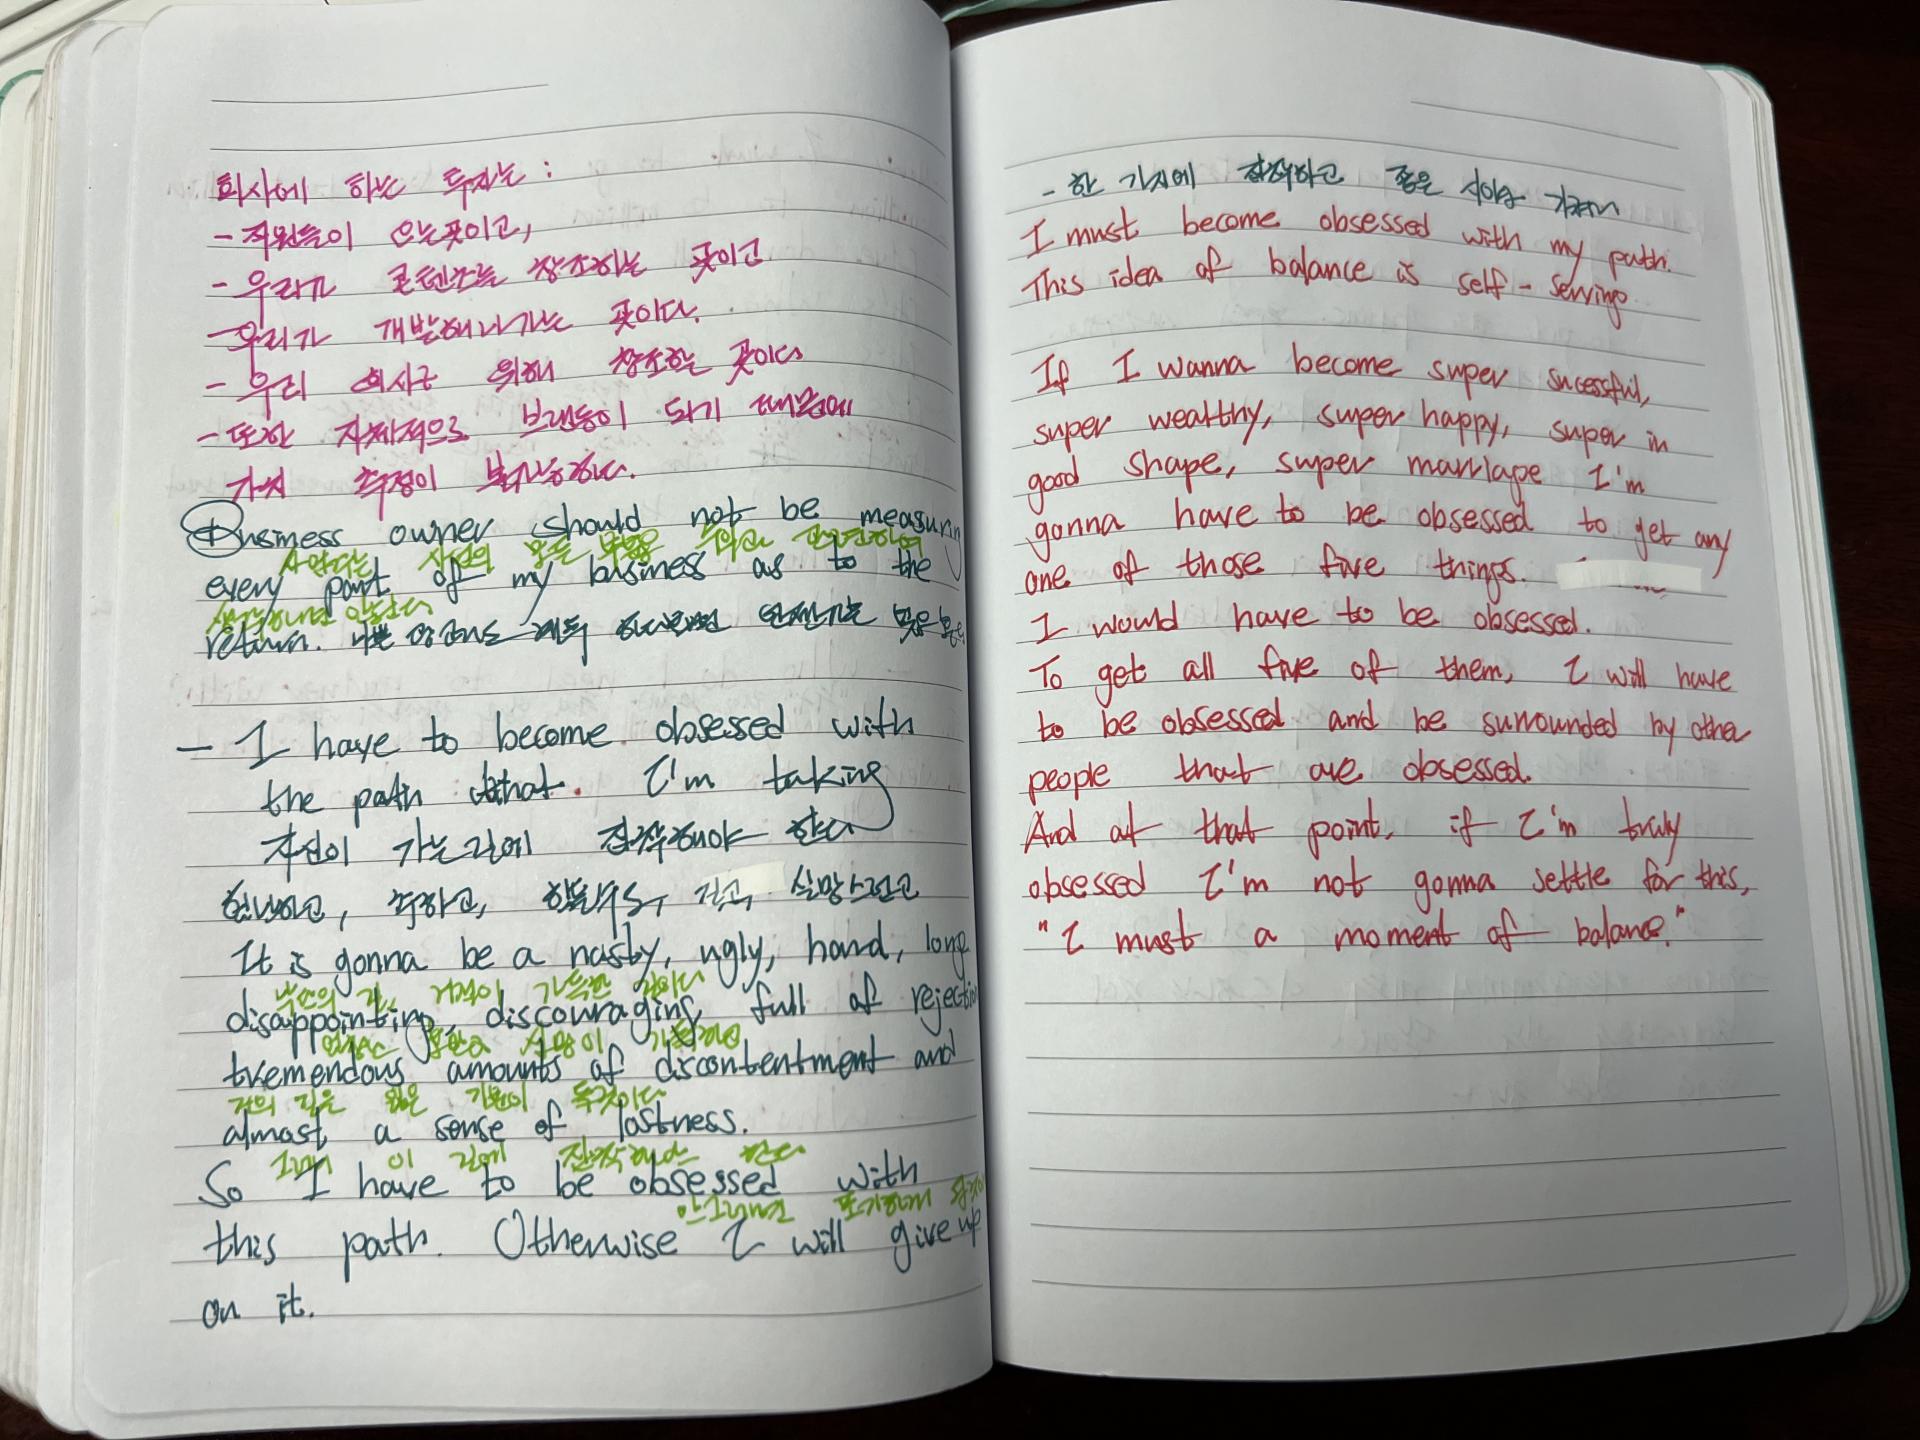 회사에 하는 투자는 :
- 직원들이 오는곳이고,
- 우리가 콘텐츠를 창조하는 곳이고
- 우리가 개발해나가는 곳이다.
- 우리 회사를 위해 창조하는 곳이다
- 또한 자체적으로 브랜딩이 되기 때문에
가치 측정이 불가능하다.
Business owner should not be measuring
사업가는 사업의 모든 부분을 수익과 관련하여
every part of my business as to the
생각하면 안된다
return. 나쁜 광고라도 계속 하다보면 언젠가는
- I have to become obsessed with
the path that. I'm taking
자신이 가는길에 집착해야 한다
험난하고, 추하고, 힘들고, 길고, 실망스런고
It is gonna be a nasty, ugly, hard, long
길, 거절이 가득한 길이다
disappointing, discouraging, full of rejection
엄청난 불만과 가득하고
tremendous amounts of discontentment and
거의 길을 잃은 기분이 들것이다
almost a sense of lostness.
그래서 이 길에 집착해야 한다
So I have to be obsessed with
안그러면 포기하게 될것이
this path. Otherwise I will give up
on it.
- 한 가지에 집착하고 좁은 시야를 가져라
I must become obsessed with my path.
This idea of balance is self - serving.
If I wanna become super sucessful,
super wealthy, super happy, super in
good shape, super marriage I'm
gonna have to be obsessed to get any
one of those five things.
I would have to be obsessed.
To get all five of them, I will have
to be obsessed and be surrounded by other
people that are obsessed.
And at that point, if I'm truly
obsessed I'm not gonna settle for this,
"I must a moment of balance."